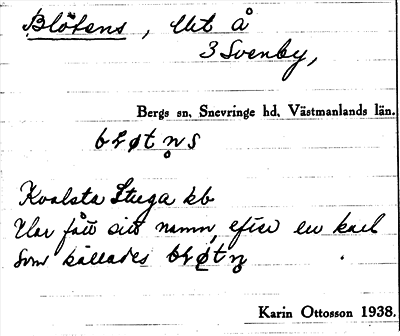 Blötens, Ut å
3 Svenby,
Bergs sn, Snevringe hd, Västmanlands län.
bløtn̥s
Kvalsta Stuga kb
Har fått sitt namn efter en karl
som kallades bløtn̥
Karin Ottosson 1938.